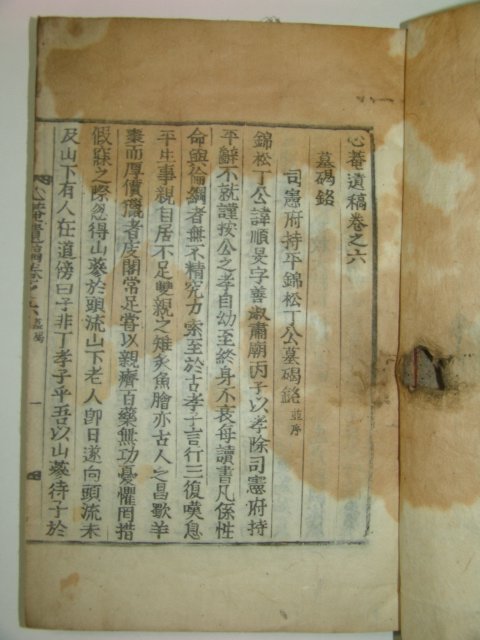 心菴遺稿卷之六
墓碣銘
司憲府持平錦松丁公墓碣銘 並序
錦松丁公諱順旻字善淑肅廟丙子以孝除司憲府持
平辭不就謹按公之孝自幼至終身不衰每讀書凡係性
命與倫綱者無不精究力索至於古孝子言行三復嘆息
平生事親自居不足雙親之雉炙魚膾亦古人之昌歜羊
棗而厚價獵者庋閣常足嘗以親癠百藥無功憂懼罔措
假寐之際忽得山蔘於頭流山下老人卽日遂向頭流未
及山下有人在道傍曰子非丁孝子乎吾以山蔘待子於
心菴遺稿卷之六 墓碣 一